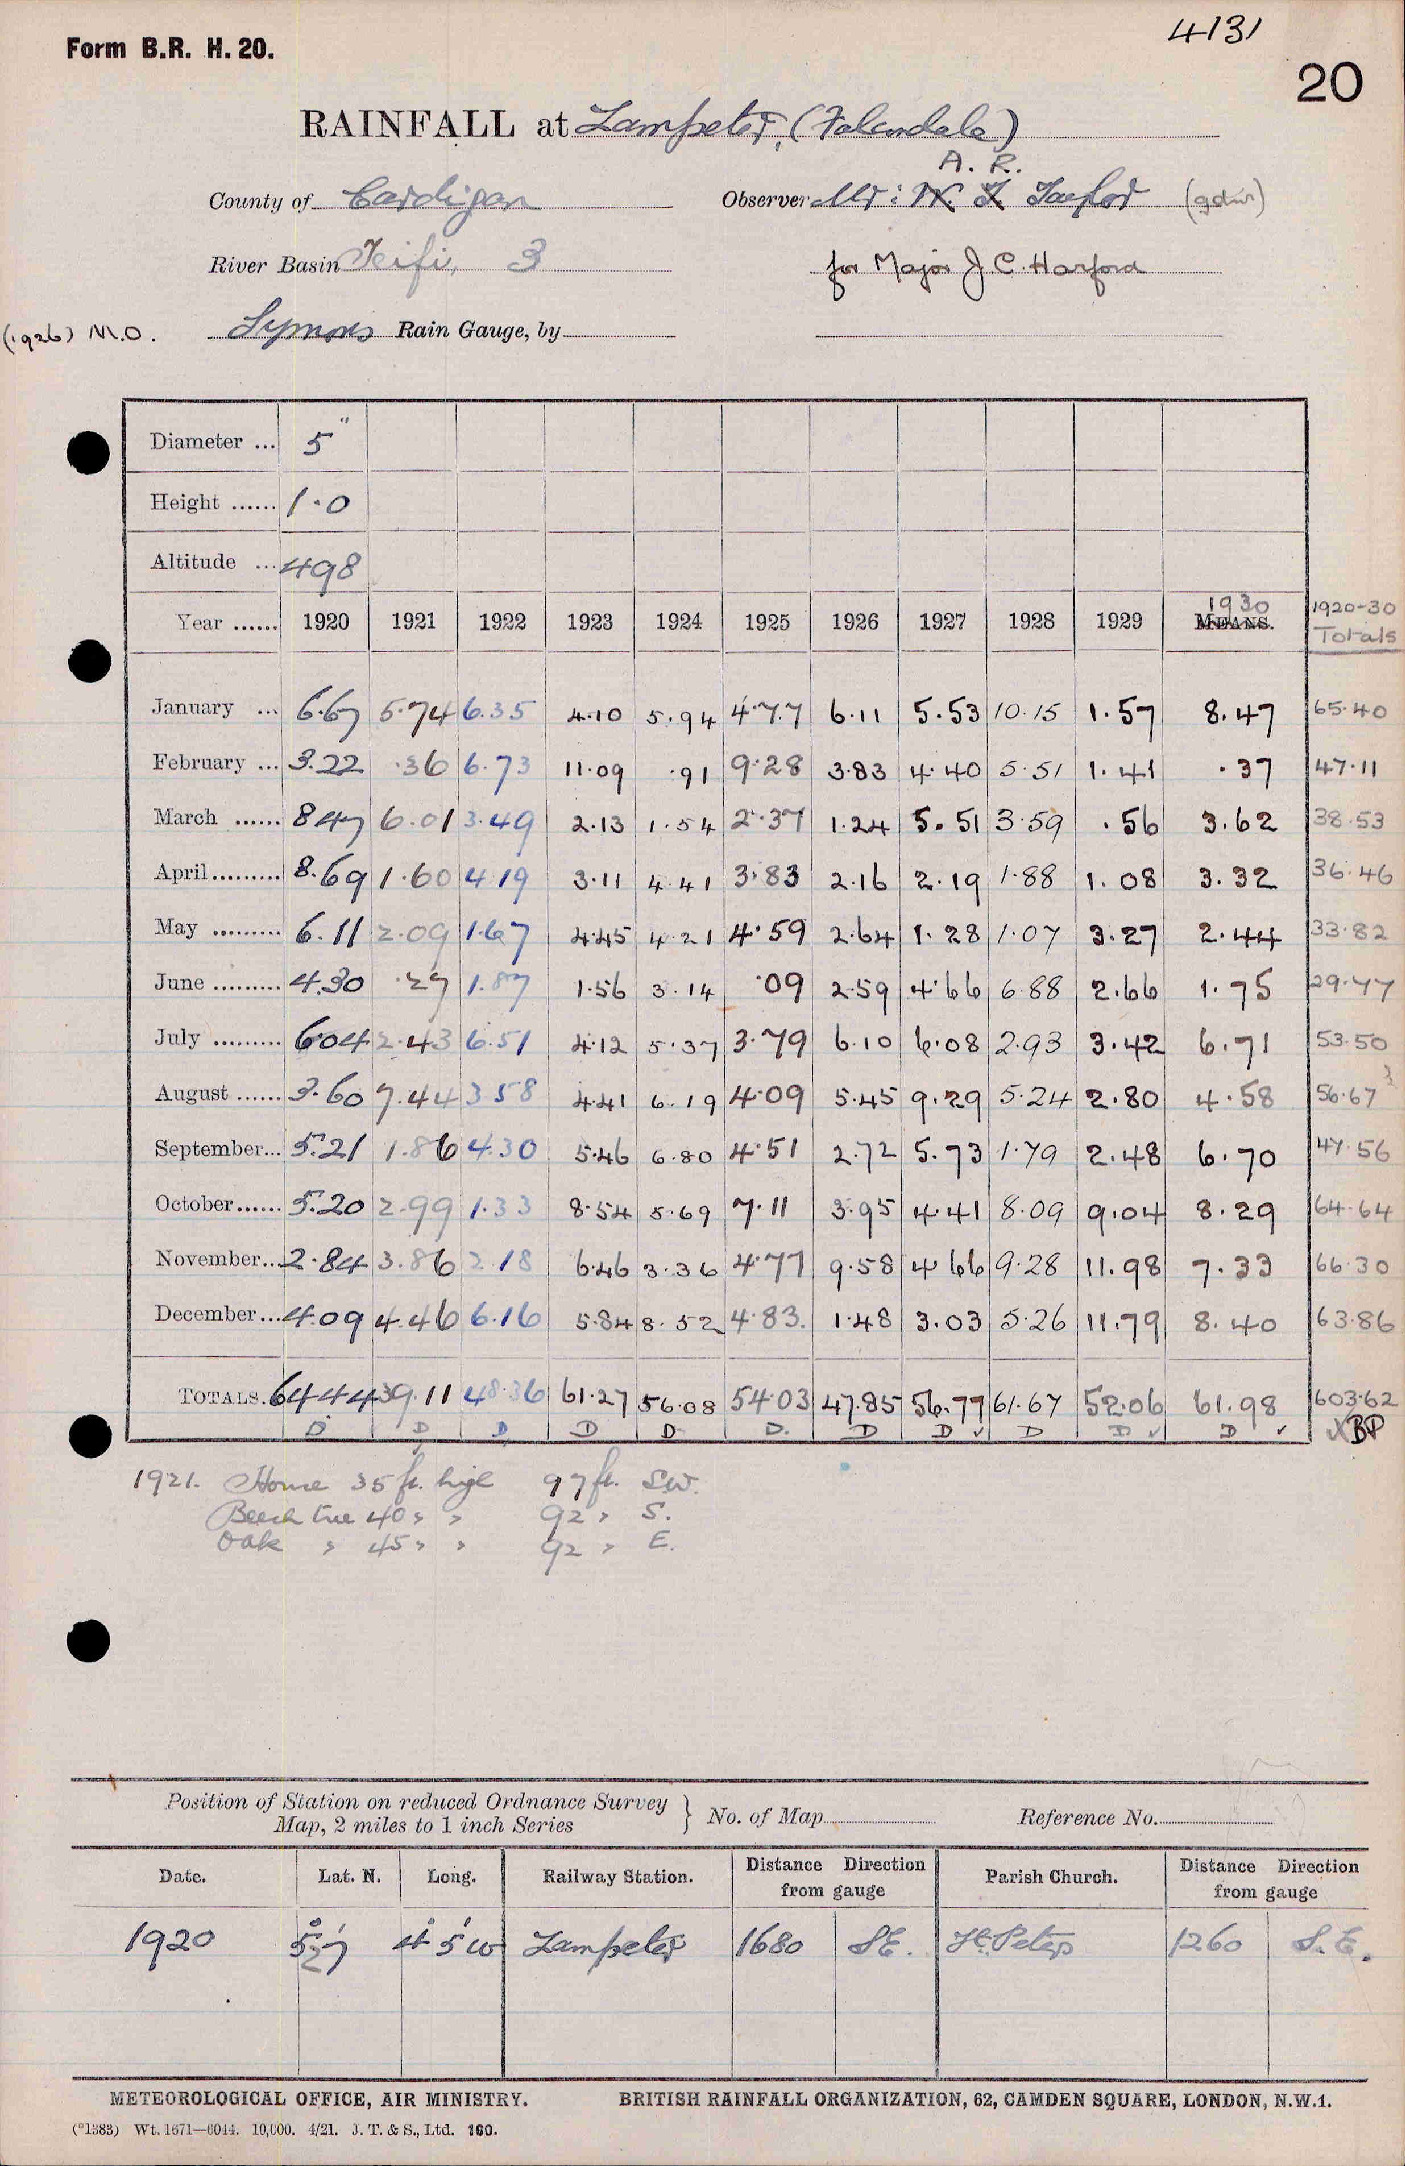 Form B.R. H. 20.
4131
20
RAINFALL at Lampeter, (Falcondale)
A. R.
County of Cardigan Observer Mr: W. F. Taylor (gdnr)
River Basin Teifi, 3 for Major J C. Harford
(1926) M.O. Symons Rain Gauge, by
Diameter ... 5"
Height ...... 1.0
Altitude ... 498
Year ...... 1920 1921 1922 1923 1924 1925 1926 1927 1928 1929 1930 MEANS. 1920-30 Totals
January ... 6.67 5.74 6.35 4.10 5.94 4.77 6.11 5.53 10.15 1.57 8.47 65.40
February ... 3.22 .36 6.73 11.09 .91 9.28 3.83 4.40 5.51 1.41 .37 47.11
March ...... 8.47 6.01 3.49 2.13 1.54 2.37 1.24 5.51 3.59 .56 3.62 38.53
April......... 8.69 1.60 4.19 3.11 4.41 3.83 2.16 2.19 1.88 1.08 3.32 36.46
May ......... 6.11 2.09 1.67 4.45 4.21 4.59 2.64 1.28 1.07 3.27 2.44 33.82
June ......... 4.30 .27 1.87 1.56 3.14 .09 2.59 4.66 6.88 2.66 1.75 29.77
July ......... 6.04 2.43 6.51 4.12 5.37 3.79 6.10 6.08 2.93 3.42 6.71 53.50
August ...... 3.60 7.44 3.58 4.41 6.19 4.09 5.45 9.29 5.24 2.80 4.58 56.67
September... 5.21 1.86 4.30 5.46 6.80 4.51 2.72 5.73 1.79 2.48 6.70 47.56
October...... 5.20 2.99 1.33 8.54 5.69 7.11 3.95 4.41 8.09 9.04 8.29 64.64
November... 2.84 3.86 2.18 6.46 3.36 4.77 9.58 4.66 9.28 11.98 7.33 66.30
December... 4.09 4.46 6.16 5.84 8.52 4.83. 1.48 3.03 5.26 11.79 8.40 63.86
TOTALS. 64.44 39.11 48.36 61.27 56.08 54.03 47.85 56.77 61.67 52.06 61.98 603.62
D D D D D D. D D ✓ D D ✓ D ✓ BP
1921. House 35 ft. high 97 ft. SW.
Beech tree 40 " " 92 " S.
Oak " 45 " " 92 " E.
Position of Station on reduced Ordnance Survey
Map, 2 miles to 1 inch Series } No. of Map Reference No.
Date. Lat. N. Long. Railway Station. Distance Direction from gauge Parish Church. Distance Direction from gauge
1920 52° 7' 4° 5' W Lampeter 1680 SE. St. Peters 1260 S.E.
METEOROLOGICAL OFFICE, AIR MINISTRY. BRITISH RAINFALL ORGANIZATION, 62, CAMDEN SQUARE, LONDON, N.W.1.
(*1383) Wt. 1671—6044. 10,000. 4/21. J. T. & S., Ltd. 160.